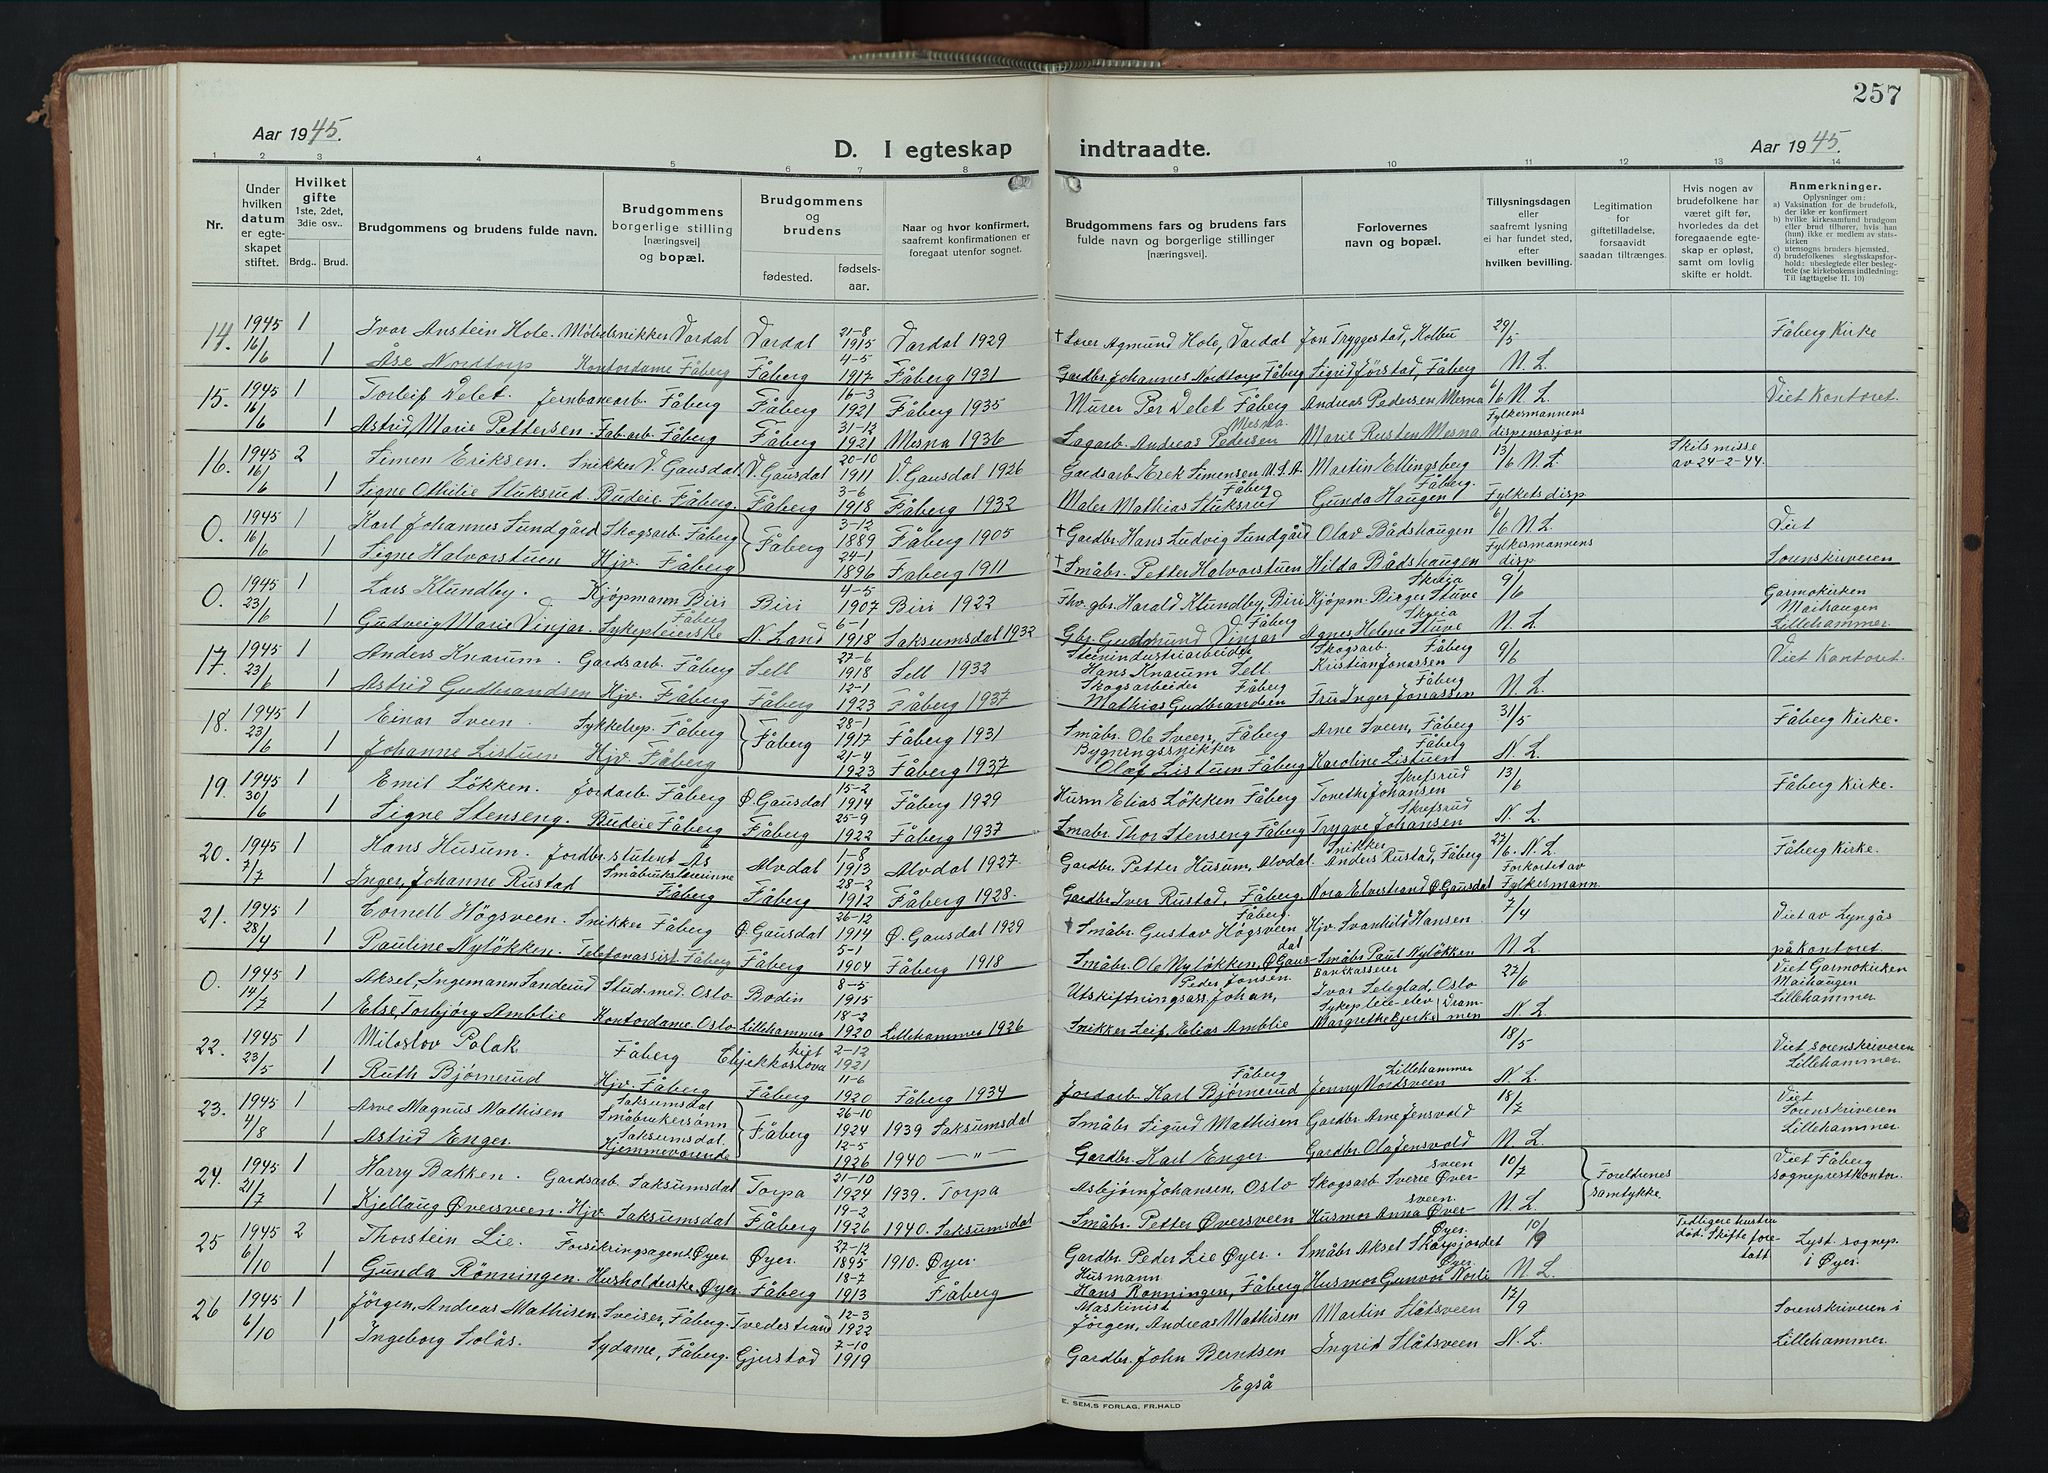 257
Aar 1945.
D. I egteskap indtraadte.
Aar 1945.
1 2 3 4 5 6 7 8 9 10 11 12 13 14
Nr.
Under hvilken datum er egteskapet stiftet.
Hvilket gifte 1ste, 2det, 3die osv..
Brdg.. Brud.
Brudgommens og brudens fulde navn.
Brudgommens borgerlige stilling [næringsvei] og bopæl.
Brudgommens og brudens
fødested. fødsels-aar.
Naar og hvor konfirmert, saafremt konfirmationen er foregaat utenfor sognet.
Brudgommens fars og brudens fars fulde navn og borgerlige stillinger [næringsvei].
Forlovernes navn og bopæl.
Tillysningsdagen eller saafremt lysning ei har fundet sted, efter hvilken bevilling.
Legitimation for giftetilladelse, forsaavidt saadan tiltrænges.
Hvis nogen av brudefolkene har været gift før, hvorledes da det foregaaende egteskap er opløst, samt om lovlig skifte er holdt.
Anmerkninger.
Oplysninger om:
a) Vaksination for de brudefolk, der ikke er konfirmert
b) hvilke kirkesamfund brudgom eller brud tilhører, hvis han (hun) ikke er medlem av statskirken
c) utensogns bruders hjemsted.
d) brudefolkenes slegtsskapsforhold: ubeslegtede eller beslegtede (se kirkebokens indledning: Til iagttagelse II. 10)
14. 1945 16/6 1 Ivar Anstein Hole. Møbelsnikker Vardal Vardal 21-8 1915 Vardal 1929 † Agmund Hole, Vardal Jon Tryggestad, Kolbu 29/5 Fåberg Kirke
1 Åse Nordtorp Kontordame Fåberg Fåberg 4-5 1917 Fåberg 1931 Gardbr. Johannes Nordtorp Fåberg Sigrid Jørstad, Fåberg N. L.
15. 1945 16/6 1 Torleif Delet. Jernbanearb. Fåberg Fåberg 16-3 1921 Fåberg 1935 Murer Per Delet Fåberg Andreas Pedersen Mesna 6/6 N. L. Viet Kontoret.
1 Astrid, Marie Pettersen. Fab. arb. Fåberg Fåberg 31-12 1921 Mesna 1936 Sagarb. Andreas Pedersen Mesna. Marie Rusten Mesna Fylkesmannens dispensasjon
16. 1945 16/6 2 Simen Eriksen. Snikker V. Gausdal V. Gausdal 20-10 1911 V. Gausdal 1926 Gardsarb. Erek Simensen U.S.A. Martin Ellingsberg Fåberg. 13/6 N. L. Skilsmisse av 24-2-44.
1 Signe Othilie Stuksrud. Budeie Fåberg. Fåberg 3-6 1918 Fåberg 1932 Maler Mathias Stuksrud Fåberg Gunda Haugen Fylkets disp
0. 1945 16/6 1 Karl Johannes Sundgård Skogsarb. Fåberg Fåberg 3-12 1889 Fåberg 1905 † Gardbr. Hans Ludvig Sundgård Olav Bådshaugen 6/6 N. L. Viet
1 Signe Halvorstuen Hjv. Fåberg 24-1 1896 Fåberg 1911 † Småbr. Petter Halvorstuen Hilda Bådshaugen Fylkesmannens disp Sorenskriveren
0. 1945 23/6 1 Lars Klundby. Kjøpmann Biri Biri 4-5 1907 Biri 1922 Harald Klundby, Biri Kjøpm. Birger Stuve Skreia 9/6 Garmokirken Maihaugen
1 Gudveig Marie Vinjar. Sykepleierske Fåberg N. Land 6-1 1918 Saksumsdal 1932 Gbr. Gudmund Vinjar Fåberg Agnes Helene Stuve Skreia N. L. Lillehammer.
17. 1945 23/6 1 Anders Knarum. Gardsarb. Fåberg Sell 27-6 1918 Sell 1932 Steinindustriarbeider Hans Knarum Sell Skogsarb. Kristian Jonassen Fåberg 9/6 Viet Kontoret.
1 Astrid Gudbrandsen Hjv. Fåberg Fåberg 12-1 1923 Fåberg 1937 Skogsarbeider Mathias Gudbrandsen Fåberg Fru Inger Jonassen Fåberg N. L.
18. 1945 23/6 1 Einar Sveen. Sykkelrep. Fåberg Fåberg 28-1 1917 Fåberg 1931 Småbr. Ole Sveen, Fåberg Arne Sveen, Fåberg 31/5 Fåberg Kirke.
1 Johanne Listuen Hjv. Fåberg 21-4 1923 Fåberg 1937 Bygningssnikker Olaf Listuen Fåberg Karoline Listuen Fåberg N. L.
19. 1945 30/6 1 Emil Løkken. Jordarb. Fåberg Ø. Gausdal 15-2 1914 Fåberg 1929 Husm Elias Løkken Fåberg Johansen Skrefsrud 13/6 Fåberg Kirke.
1 Signe Stenseng. Budeie Fåberg Fåberg 25-9 1922 Fåberg 1937 Småbr. Thor Stenseng Fåberg Trygve Johansen Skrefsrud N. L.
20. 1945 7/7 1 Hans Husum. Jordbr. student Ås Alvdal 1-8 1913 Alvdal 1927. Gardbr. Petter Husum, Alvdal Snikker Anders Rustad, Fåberg 27/6. N. L. Fåberg Kirke.
1 Inger, Johanne Rustad Småbrukslærerinne Fåberg Fåberg 28-2 1912 Fåberg 1928. Gardbr. Iver Rustad, Fåberg, Nora Elvestrand Ø Gausdal Forkortet av Fylkesmann
21. 1945 28/4 1 Cornell Høgsveen. Snikker Fåberg Ø. Gausdal 26-12 1914 Ø. Gausdal 1929 Småbr. Gustav Høgsveen Fåberg. Hjv. Svanhild Hansen 7/4 Viet av Lyngås
1 Pauline Nyløkken. Telefonassist. Fåberg Fåberg 5-1 1904 Fåberg 1918 Småbr. Ole Nyløkken, Ø Gausdal Småbr. Paul Nyløkken N. L. på kontoret.
0. 1945 14/7 1 Aksel, Ingemann Sanderud Stud. med. Oslo Bodin 8-5 1915 Utskiftningsass. Johan, Peder Jonsen Bankkasserer Ivar Seleglad, Oslo 27/6 Viet Garmokirken Maihaugen
1 Else Torbjørg Amblie Kontordame. Oslo Lillehammer 18-2 1920 Lillehammer 1926 Snikker Leif, Elias Amblie Sykepleie-elev Margrethe Bjerke Drammen N. L. Lillehammer
22. 1945 23/5 1 Miloslov Polak Fåberg 2-12 1921 18/5 Viet sorenskriveren Lillehammer.
1 Ruth Bjørnerud Hjv. Fåberg Fåberg 11-6 1920 Fåberg 1934 Jordarb. Karl Bjørnerud Fåberg Jenny Nordsveen Lillehammer N. L.
23. 1945 4/8 1 Arve Magnus Mathisen Småbrukersønn Saksumsdal Fåberg 26-10 1924 1939 Saksumsdal Småbr. Sigurd Mathisen Gardbr. Arne Jensvold 18/7 Viet Sorenskriveren Lillehammer.
1 Astrid Enger. Saksumsdal. Hjemmeværende 12-5 1926 1940 — " — Gardbr. Karl Enger. Gardbr. Olaf Jensvold N. L.
24. 1945 21/7 1 Harry Bakken. Gardsarb. Saksumsdal Torpa 21-10 1924 1939. Torpa Asbjørn Johansen, Oslo Skogsarb. Sverre Øversveen 10/7 Foreldrenes samtykke Viet Fåberg sogneprestkontor
1 Kjellaug Øversveen. Hjv. Saksumsdal Fåberg 19-2 1926 1940. Saksumsdal Småbr. Petter Øversveen Husmor Anna Øversveen. N. L.
25 1945 6/10 2 Thorstein Lie. Forsikringsagent Øyer. Øyer. 27-12 1895 1910. Øyer Gardbr. Peder Lie Øyer. Småbr. Aksel Skarpjordet Øyer. 10/9 Tidligere hustru død. Skifte foretatt Lyst. sognep. i Øyer.
1 Gunda Rønningen. Husholderske Øyer. Fåberg 18-7 1913 Fåberg Husmann Hans Rønningen, Fåberg Husmor Gunvor Norli Øyer. N. L.
26 1945 6/10 1 Jørgen, Andreas Mathisen. Sveiser, Fåberg. Tvedestrand 12-3 1922 Maskinist Jørgen, Andreas Mathisen Martin Slåtsveen 17/9 Sorenskriveren i
1 Ingeborg Solås. Sydame, Fåberg. Gjerstad 7-10 1919 Gardbr. John Berntsen Egså Ingrid Slåtsveen N. L. Lillehammer.
E. SEM,S FORLAG, FR.HALD